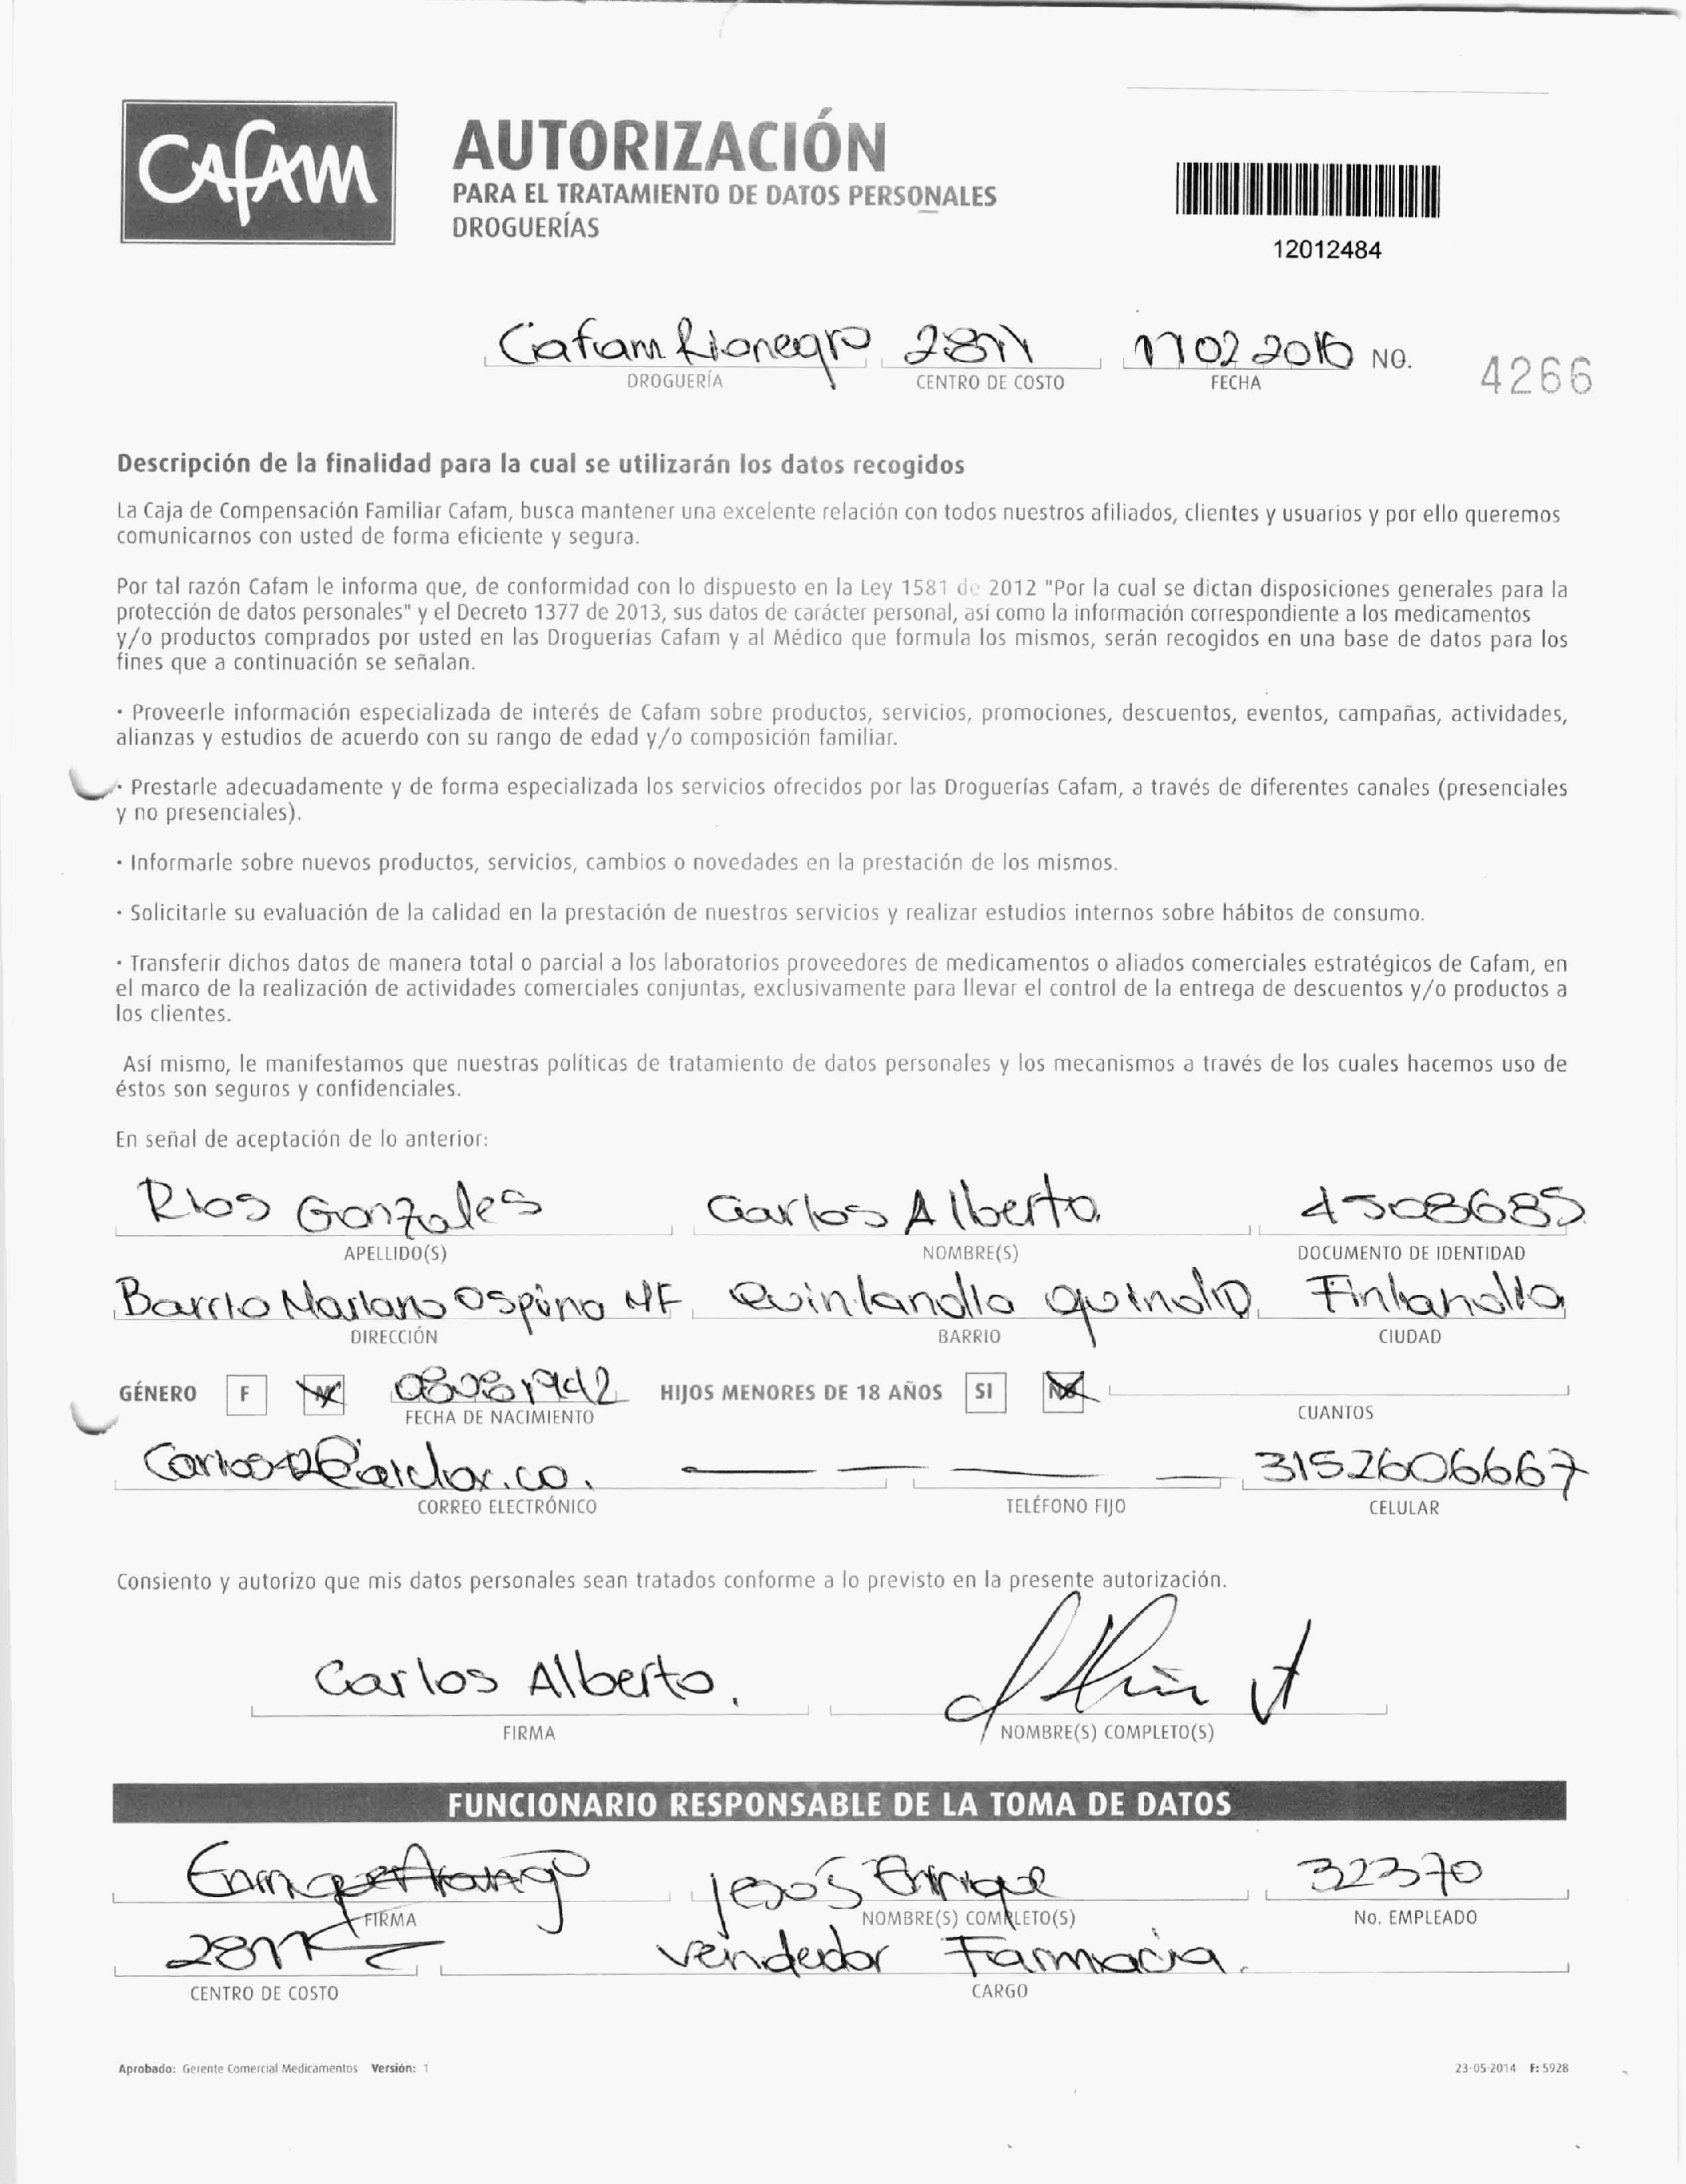 CAFAM
AUTORIZACIÓN
PARA EL TRATAMIENTO DE DATOS PERSONALES
DROGUERÍAS
12012484
Cafam Rionegro 2811 11022016 NO. 4266
DROGUERÍA CENTRO DE COSTO FECHA
Descripción de la finalidad para la cual se utilizarán los datos recogidos
La Caja de Compensación Familiar Cafam, busca mantener una excelente relación con todos nuestros afiliados, clientes y usuarios y por ello queremos
comunicarnos con usted de forma eficiente y segura.
Por tal razón Cafam le informa que, de conformidad con lo dispuesto en la Ley 1581 de 2012 "Por la cual se dictan disposiciones generales para la
protección de datos personales" y el Decreto 1377 de 2013, sus datos de carácter personal, así como la información correspondiente a los medicamentos
y/o productos comprados por usted en las Droguerías Cafam y al Médico que formula los mismos, serán recogidos en una base de datos para los
fines que a continuación se señalan.
· Proveerle información especializada de interés de Cafam sobre productos, servicios, promociones, descuentos, eventos, campañas, actividades,
alianzas y estudios de acuerdo con su rango de edad y/o composición familiar.
· Prestarle adecuadamente y de forma especializada los servicios ofrecidos por las Droguerías Cafam, a través de diferentes canales (presenciales
y no presenciales).
· Informarle sobre nuevos productos, servicios, cambios o novedades en la prestación de los mismos.
· Solicitarle su evaluación de la calidad en la prestación de nuestros servicios y realizar estudios internos sobre hábitos de consumo.
· Transferir dichos datos de manera total o parcial a los laboratorios proveedores de medicamentos o aliados comerciales estratégicos de Cafam, en
el marco de la realización de actividades comerciales conjuntas, exclusivamente para llevar el control de la entrega de descuentos y/o productos a
los clientes.
Así mismo, le manifestamos que nuestras políticas de tratamiento de datos personales y los mecanismos a través de los cuales hacemos uso de
éstos son seguros y confidenciales.
En señal de aceptación de lo anterior:
Rios Gonzales Carlos Alberto. 4508685
APELLIDO(S) NOMBRE(S) DOCUMENTO DE IDENTIDAD
Barrio Mariano Ospina Quinlandia quindio Finlandia
DIRECCIÓN BARRIO CIUDAD
GÉNERO F M 08081942 HIJOS MENORES DE 18 AÑOS SI NO
FECHA DE NACIMIENTO CUANTOS
3152606667
CORREO ELECTRÓNICO TELÉFONO FIJO CELULAR
Consiento y autorizo que mis datos personales sean tratados conforme a lo previsto en la presente autorización.
Carlos Alberto.
FIRMA NOMBRE(S) COMPLETO(S)
FUNCIONARIO RESPONSABLE DE LA TOMA DE DATOS
Enrique Arango Jesús Enrique 32370
FIRMA NOMBRE(S) COMPLETO(S) No. EMPLEADO
2811 vendedor Farmacia.
CENTRO DE COSTO CARGO
Aprobado: Gerente Comercial Medicamentos Versión: 1 23-05-2014 F: 5928